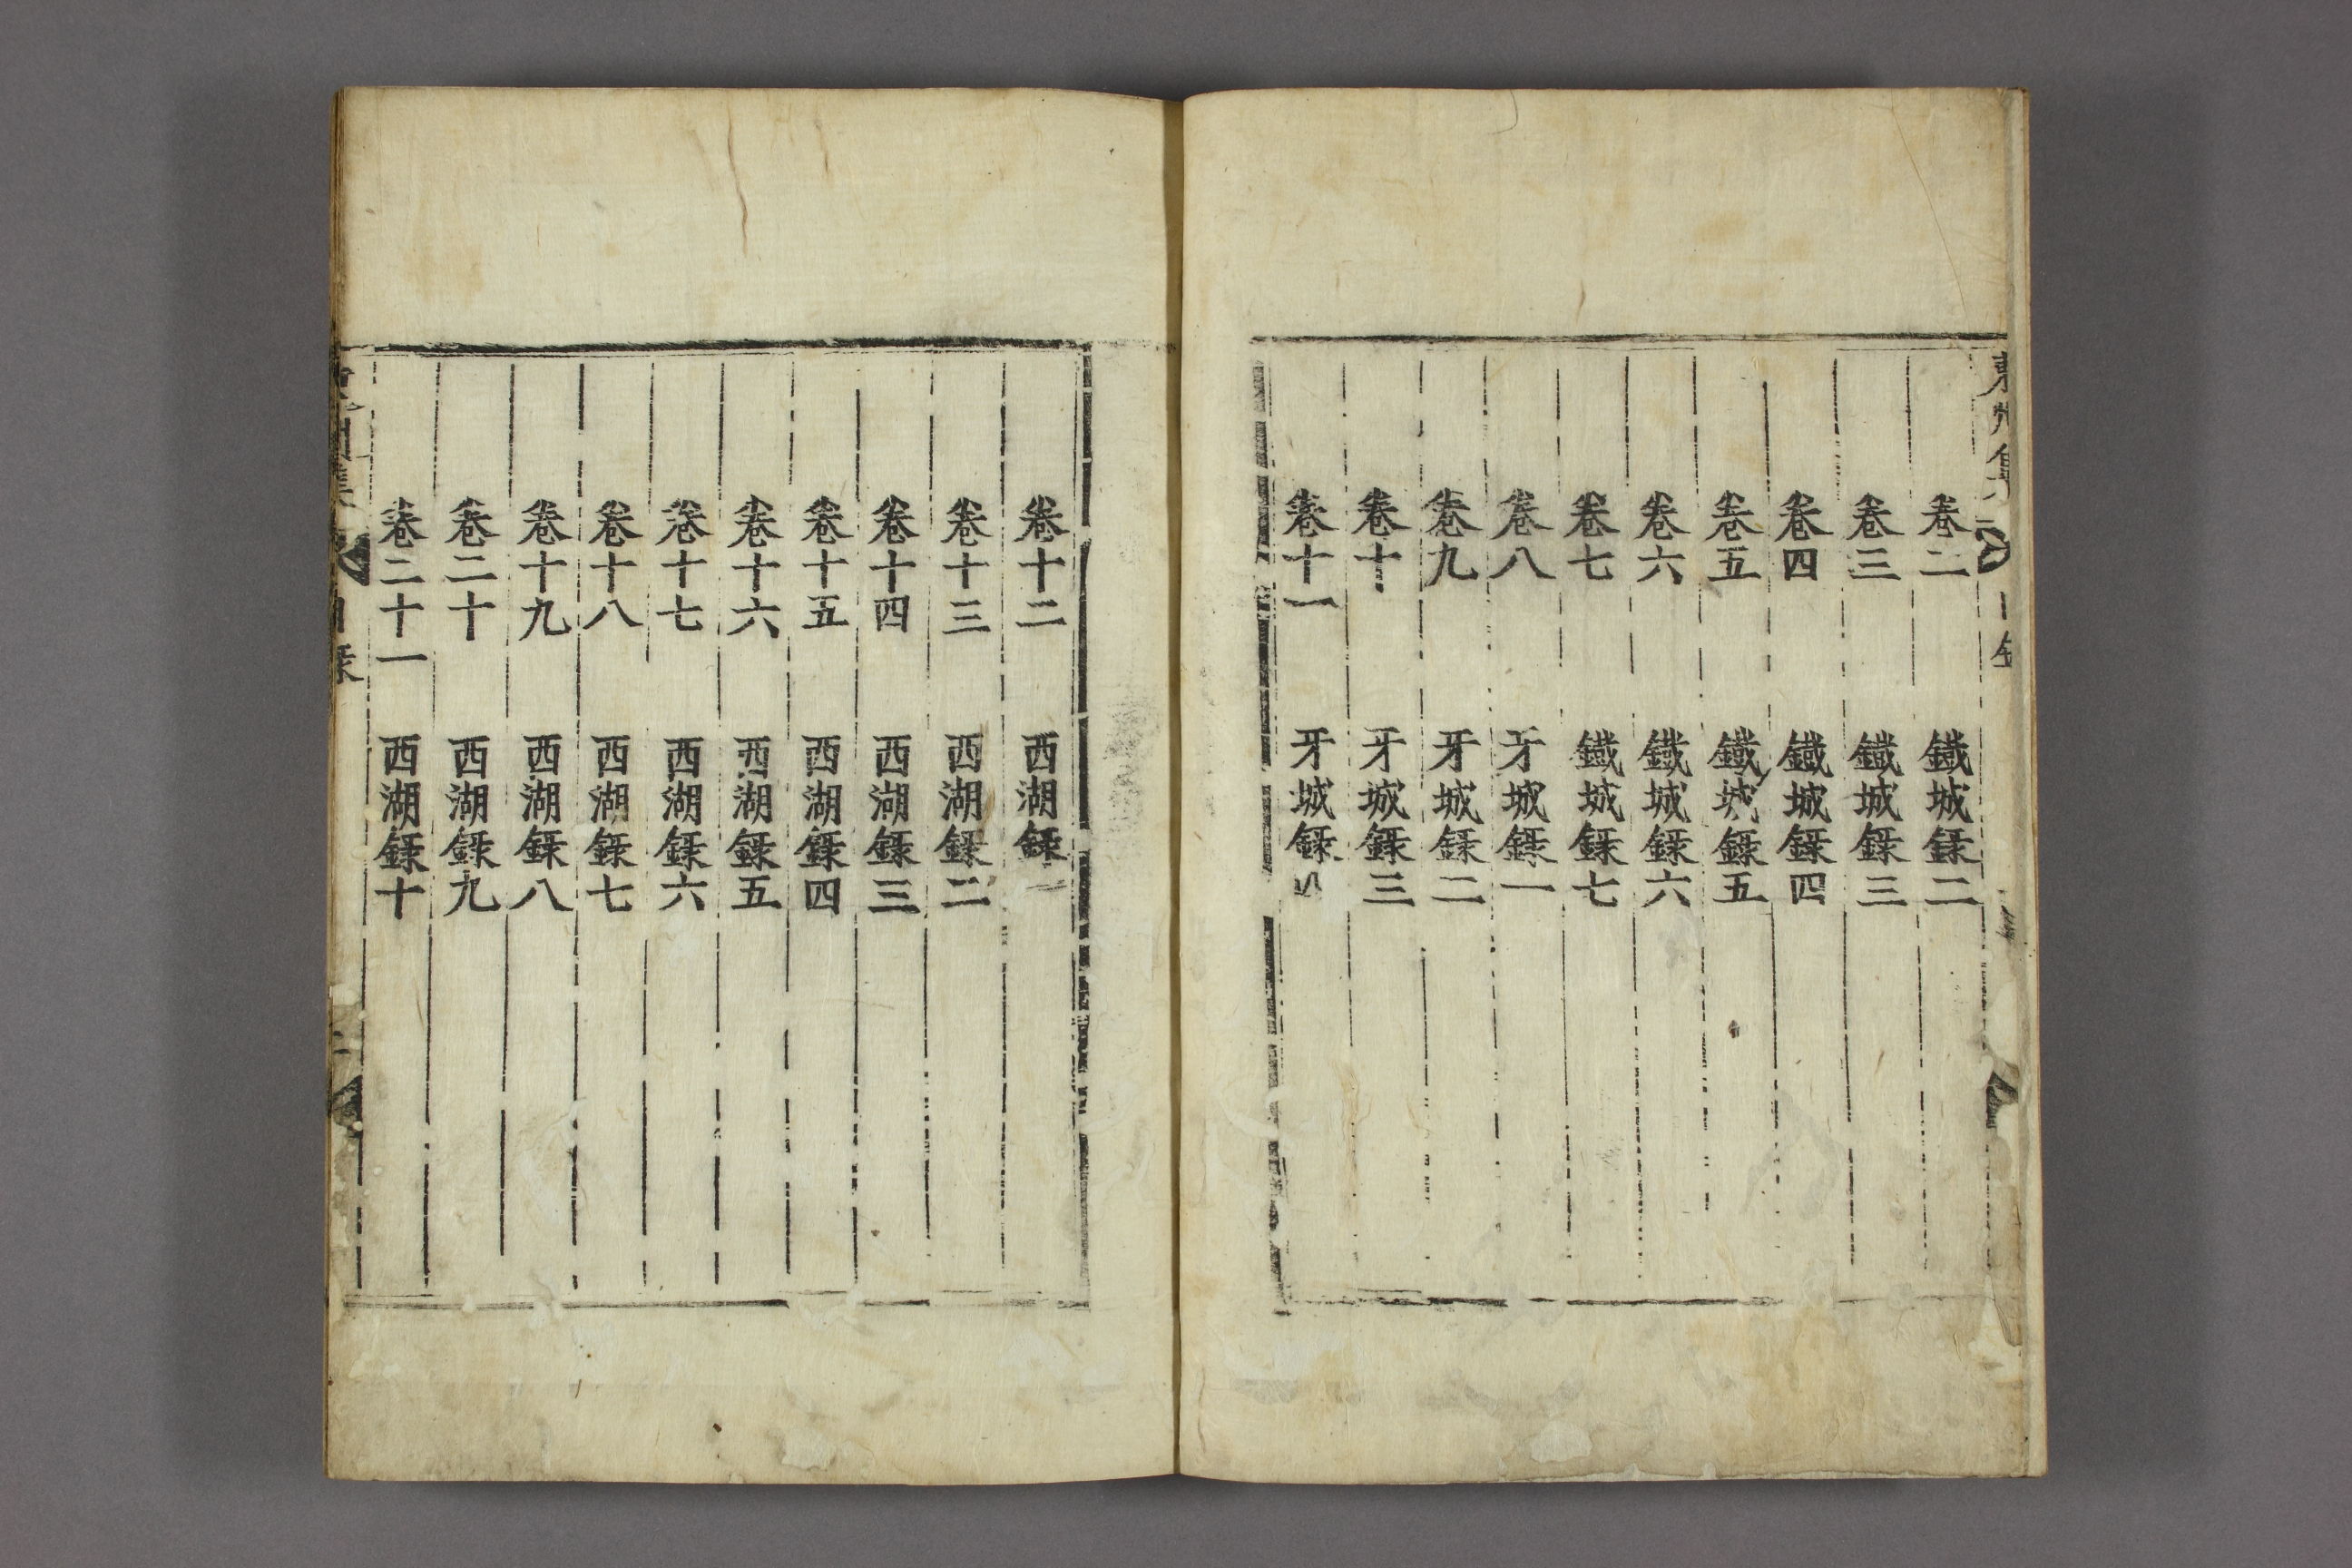 東州集
目錄
卷二 鐵城錄二
卷三 鐵城錄三
卷四 鐵城錄四
卷五 鐵城錄五
卷六 鐵城錄六
卷七 鐵城錄七
卷八 牙城錄一
卷九 牙城錄二
卷十 牙城錄三
卷十一 牙城錄
卷十二 西湖錄
卷十三 西湖錄二
卷十四 西湖錄三
卷十五 西湖錄四
卷十六 西湖錄五
卷十七 西湖錄六
卷十八 西湖錄七
卷十九 西湖錄八
卷二十 西湖錄九
卷二十一 西湖錄十